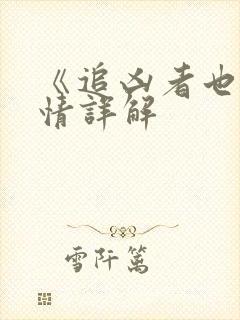 《追凶者也
情詳解
雪阡篱